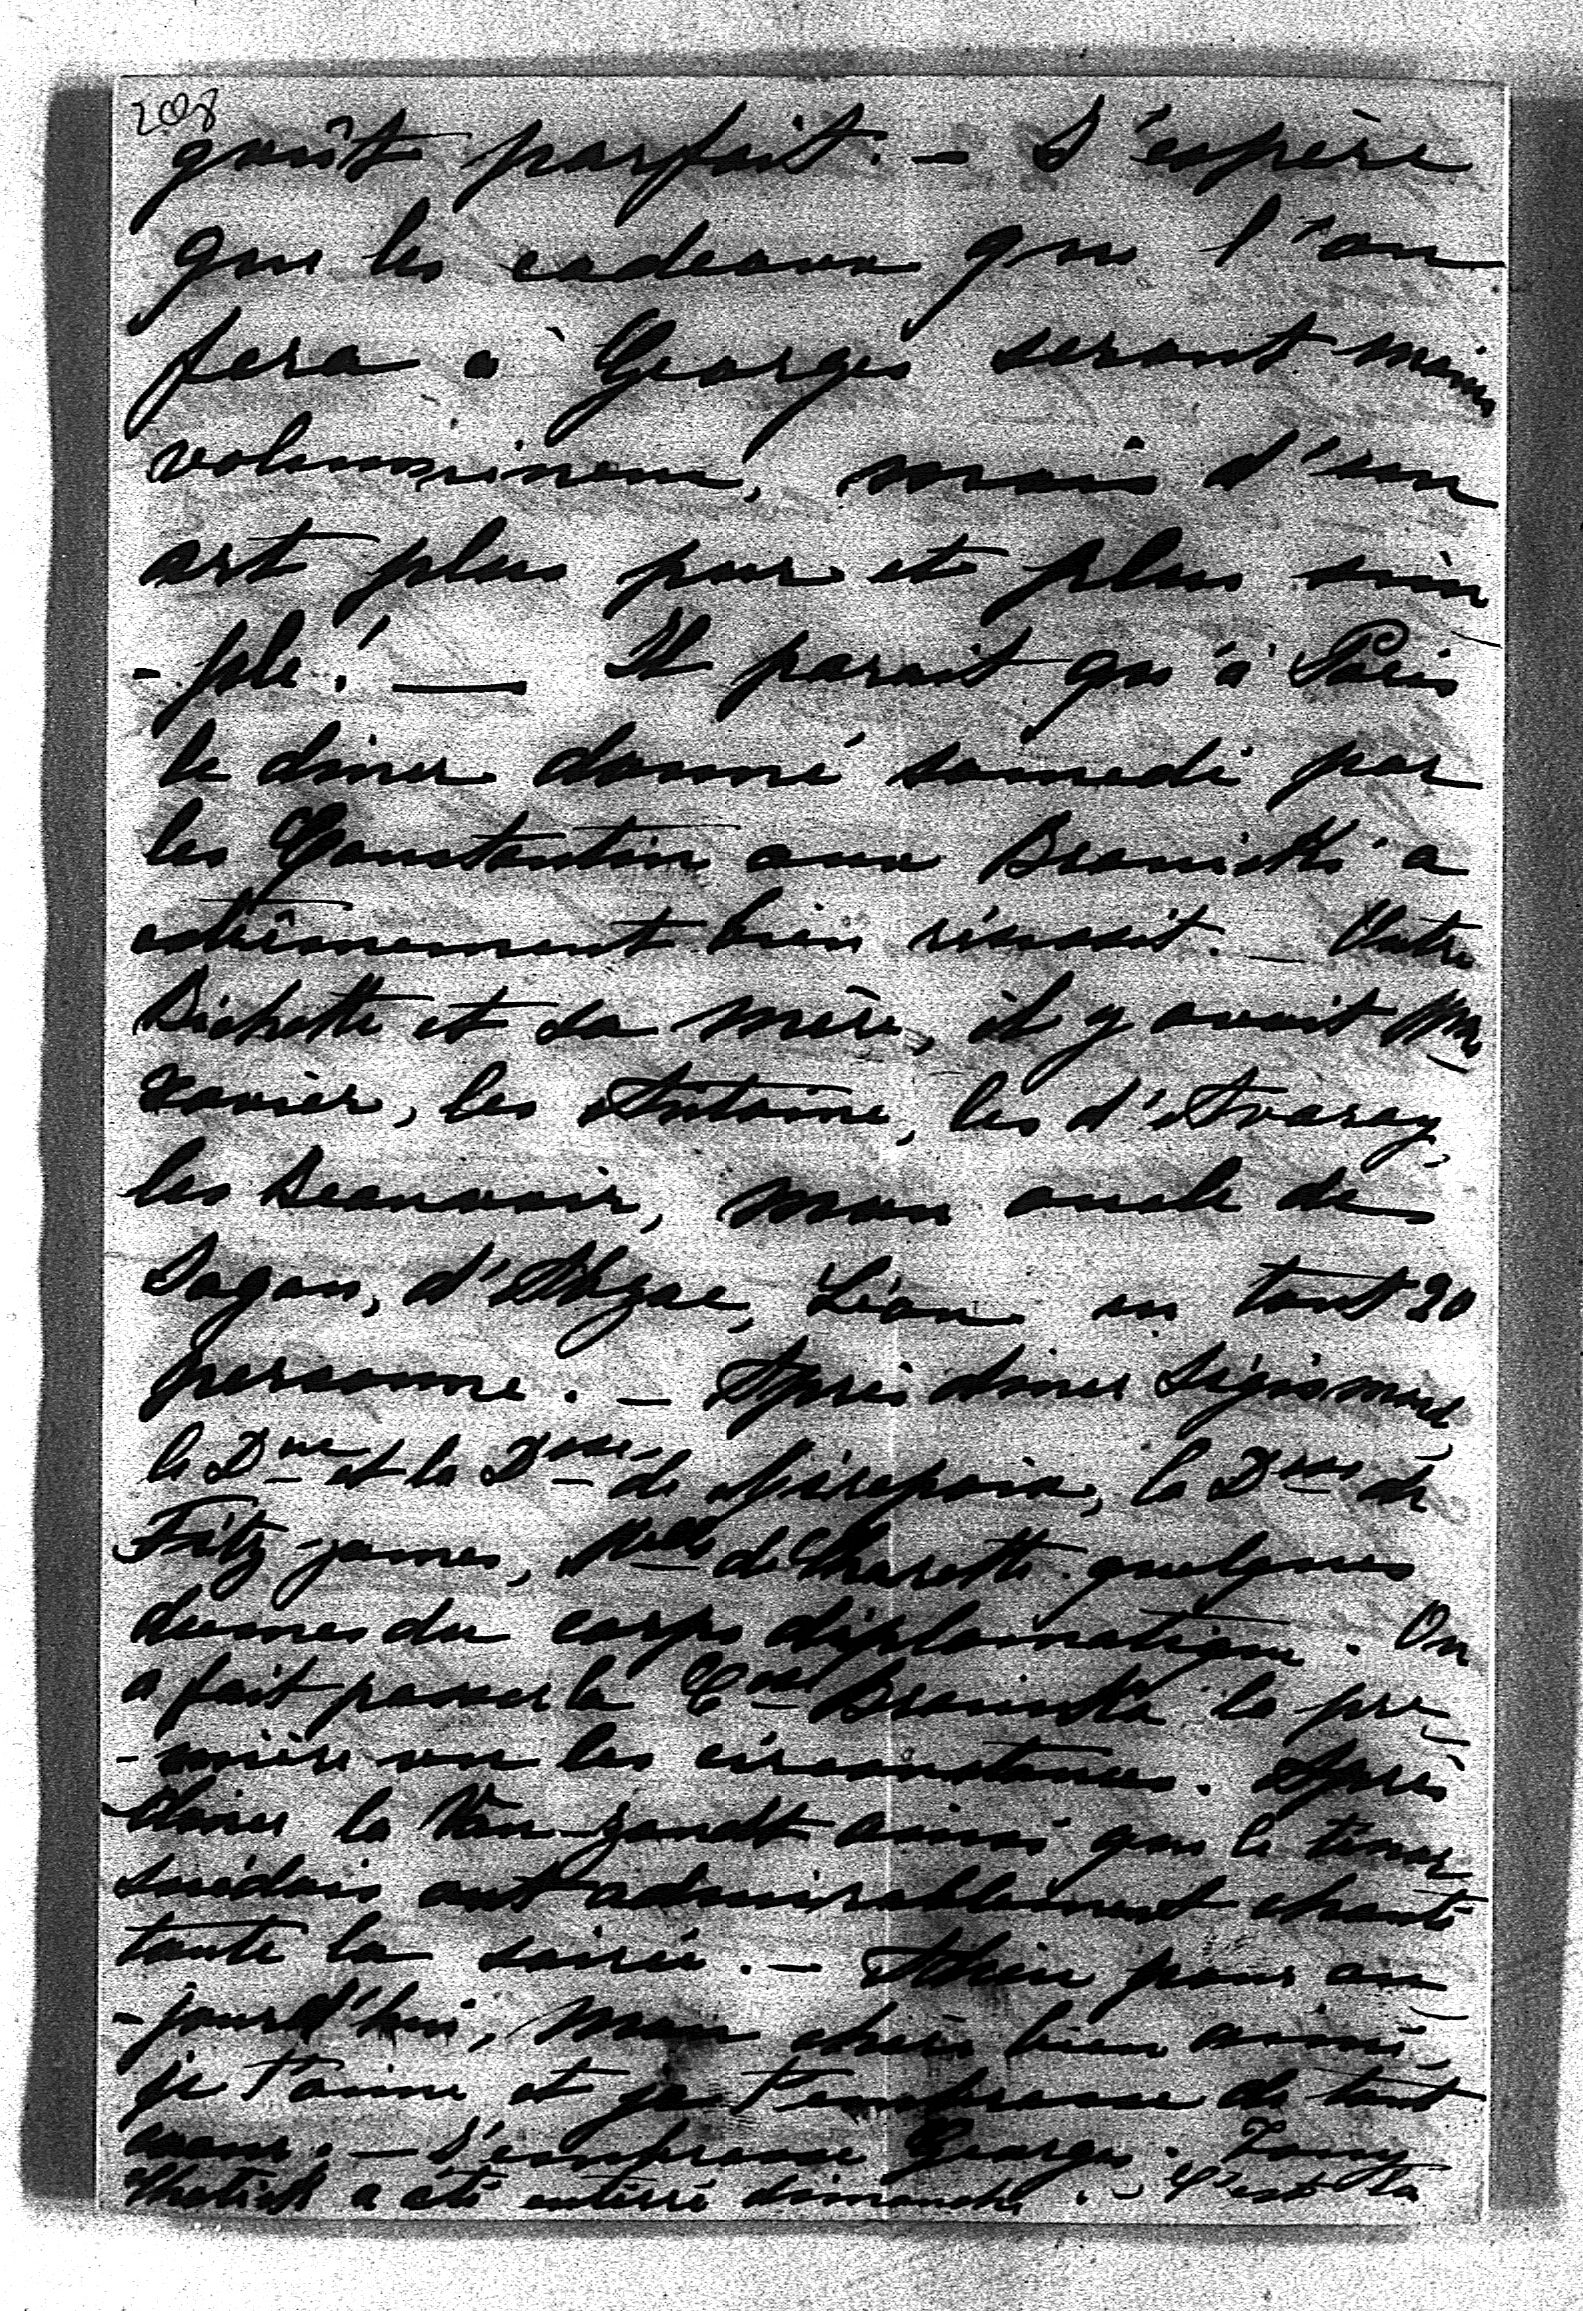 2008
goût parfait. — J'espère
que les cadeaux que l'on
fera à Georges seront moins
volumineux, mais d'un
art plus pur et plus sim
- ple! — Il parait qu'à Paris
le diner donné samedi par
les Constantin aux Branicki a
extrêmement bien réussit. — Outre
Bichette et sa mère, il y avait Mme
Xavier, les Antoine, les d'Avaray,
les Beauvoir, mon oncle de
Sagan, d'Abzac, Léon en tout 20
personne. — Après diner Sigismond
le Duc et la Dsse de Mirepoix, la Dsse de
Fitz-james, Melle de Charette quelques
dames du corps diplomatique. On
a fait passer la Csse Branicka la pre
- mière vu les circonstances. Après
diner la Van-Zandt ainsi que le ténor
suédois ont admirablement chanté
toute la soirée. — Adieu pour au
- jourd'hui, mon chéri bien aimé,
je t'aime et je t'embrasse de tout
coeur. — J'embrasse Georges.
a été enterré dimanche. — C'est la